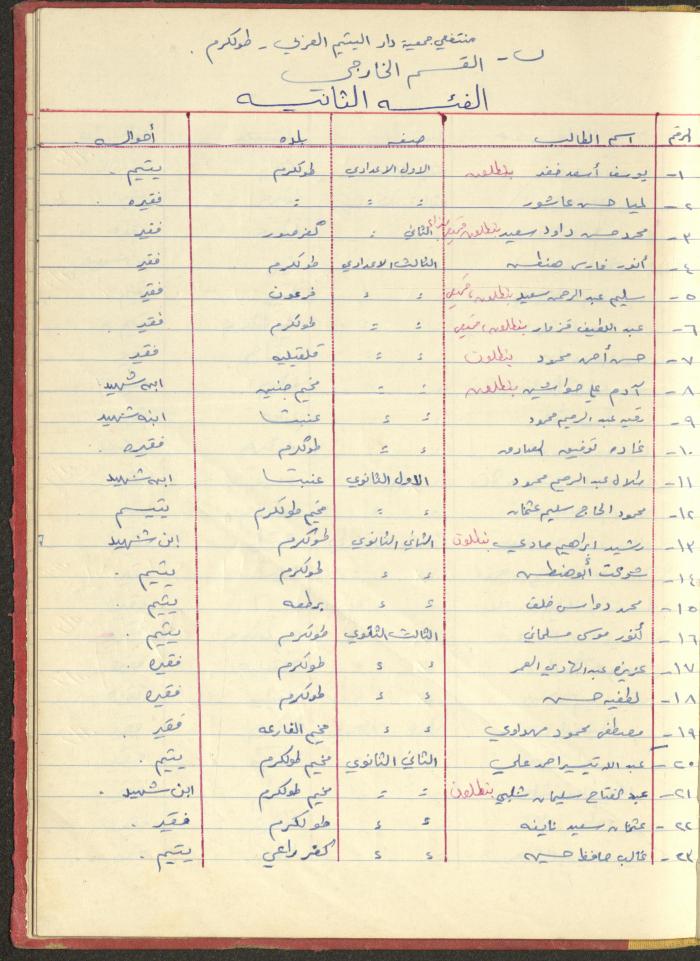 منتفعي جمعية دار اليتيم العربي - طولكرم.
ب - القسم الخارجي
الفئه الثانيه
الرقم اسم الطالب صفه بلده أحواله
١- يوسف أسعد بنطلون الاول الاعدادي طولكرم يتيم.
٢- لميا حسن عاشور = = = فقيره
٣- محمد حسن داود سعيد بنطلون قميص الثاني = كفر صور فقير
٤- أنور فارس حنطش الثالث الاعدادي طولكرم فقير
٥- سليم عبد الرحمن سعيد بنطلون، قميص = = فرعون فقير
٦- عبد اللطيف قزمار بنطلون، قميص = = طولكرم فقير
٧- حسن أحمد محمود بنطلون = = قلقيليه فقير
٨- آدم علي حواشين بنطلون = = مخيم جنين ابن شهيد
٩- رقيه عبد الرحيم محمود = = عنبتا ابنه شهيد
١٠- غاده توفيق = = طولكرم فقيره.
١١- طلال عبد الرحيم محمود الاول الثانوي عنبتا ابن شهيد
١٢- محمود الحاج سليم عثمان = = مخيم طولكرم يتيم
١٣- رشيد ابراهيم حمادي بنطلون الثاني الثانوي طولكرم ابن شهيد
١٤- شوكت أبو حنطش = = طولكرم يتيم.
١٥- محمد دواس خلف = = برطعه يتيم
١٦- أنور موسى مسلماني الثالث الثانوي طولكرم يتيم.
١٧- عزيزه عبد الهادي العمر = = طولكرم فقيره.
١٨- لطفيه حسن = = طولكرم فقيره
١٩- مصطفى محمود مهداوي = = مخيم الفارعه فقير.
٢٠- عبد الله تيسير احمد علي الثاني الثانوي مخيم طولكرم يتيم.
٢١- عبد الفتاح سليمان شلبي بنطلون = = مخيم طولكرم ابن شهيد.
٢٢- عثمان سعيد نايفه = = طولكرم فقير.
٢٣- غالب حافظ حسين = = كفر راعي يتيم.